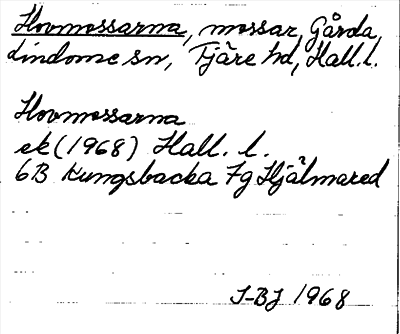 Hovmossarna, mossar, Gårda,
Lindome sn, Fjäre hd, Hall. l.
Hovmossarna
ek (1968) Hall. l.
6B Kungsbacka 7g Hjälmared
J-BJ 1968